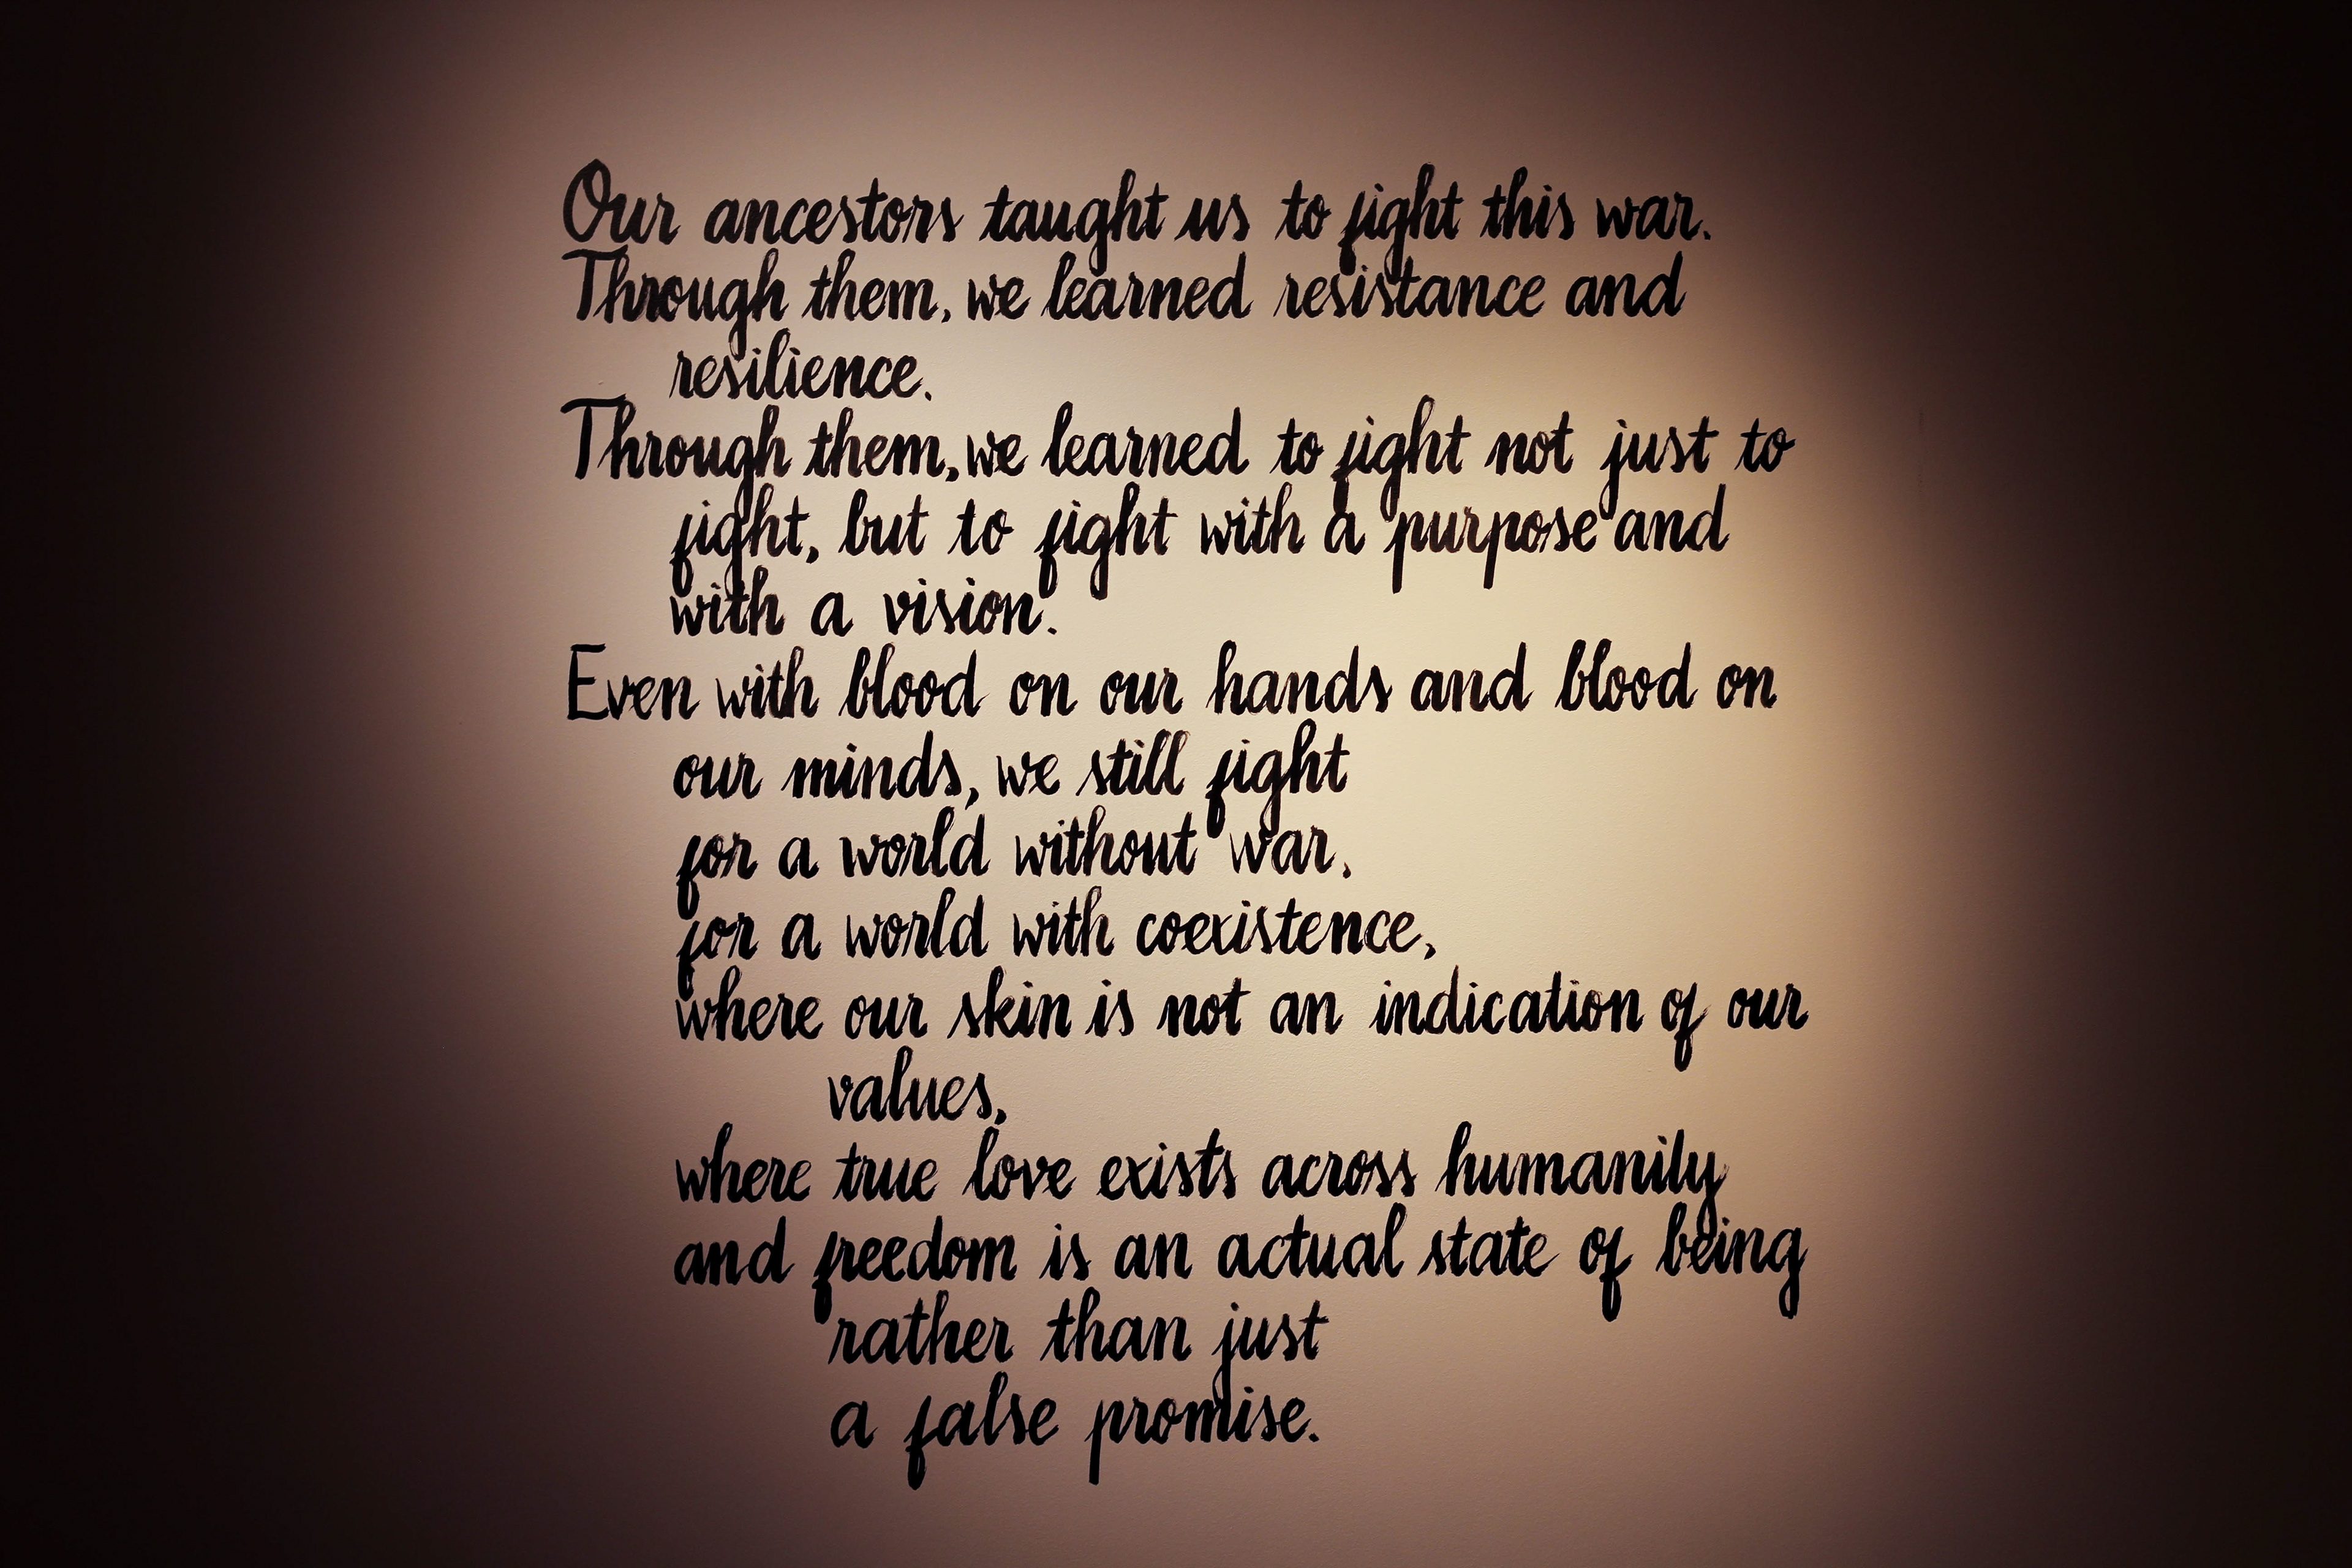 Our ancestors taught us to fight this war.
Through them, we learned resistance and
resilience.
Through them, we learned to fight not just to
fight, but to fight with a purpose and
with a vision.
Even with blood on our hands and blood on
our minds, we still fight
for a world without war,
for a world with coexistence,
where our skin is not an indication of our
values,
where true love exists across humanity
and freedom is an actual state of being
rather than just
a false promise.